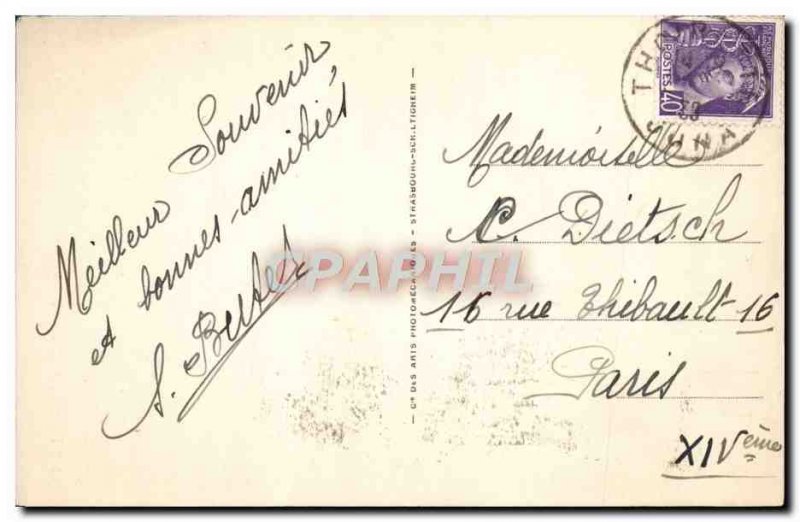 Meilleur Souvenir
et bonnes amitiés
Cie DES ARTS PHOTOMÉCANIQUES - STRASBOURG-SCHILTIGHEIM
CPAPHIL
POSTES 40
Mademoiselle
C. Dietsch
16 rue Thibault 16
Paris
XIVème